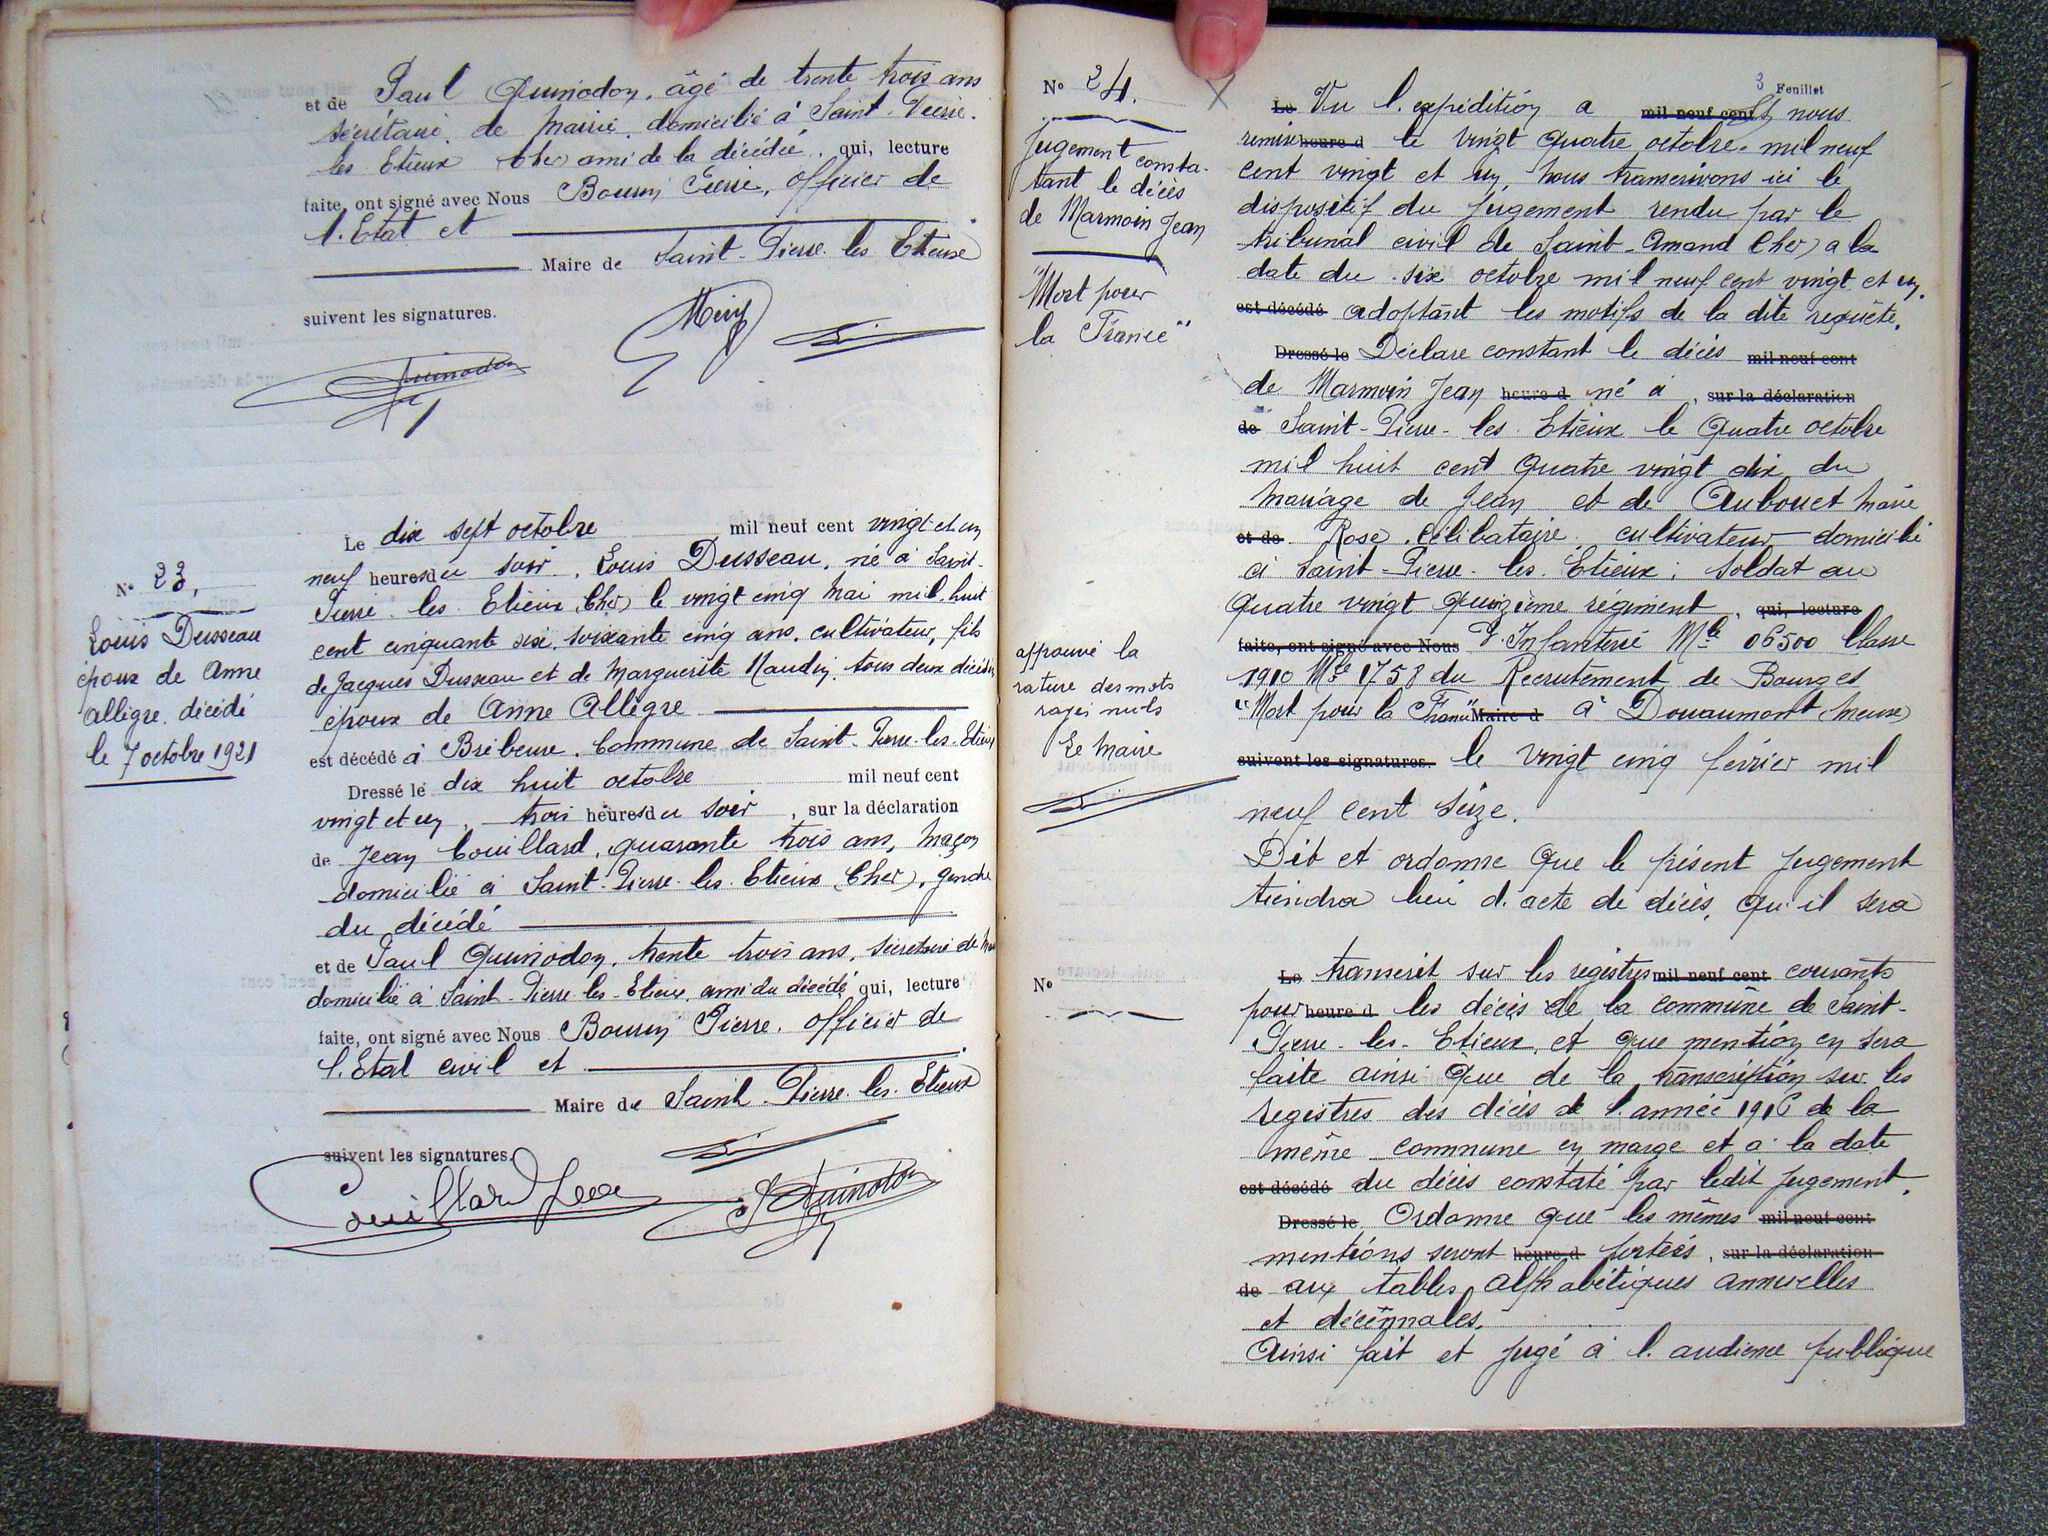 et de Paul Quinodon, âgé de trente trois ans
secrétaire de Mairie, domicilié à Saint-Pierre-
les Etieux Cher) ami de la décédée, qui, lecture
faite, ont signé avec Nous Bourin Pierre, officier de
l'Etat et
Maire de Saint-Pierre les Etieux
suivent les signatures.
Quinodon
N° 23,
Louis Dusseau
époux de Anne
Allègre, décédé
le 7 octobre 1921
Le dix sept octobre mil neuf cent vingt et un
neuf heures du soir, Louis Dusseau, né à Saint-
Pierre-les-Etieux Cher) le vingt cinq Mai mil huit
cent cinquante six, soixante cinq ans, cultivateur, fils
de Jacques Dusseau et de Marguerite Naudin, tous deux décédés
époux de Anne Allègre
est décédé à Commune de Saint-Pierre-les-Etieux
Dressé le dix huit octobre mil neuf cent
vingt et un, trois heures du soir, sur la déclaration
de Jean Couillard, quarante trois ans, maçon
domicilié à Saint-Pierre-les-Etieux (Cher), gendre
du décédé
et de Paul Quinodon, trente trois ans, secrétaire de
domicilié à Saint-Pierre-les-Etieux, ami du décédé qui, lecture
faite, ont signé avec Nous Bourin Pierre, officier de
l'Etat civil et
Maire de Saint-Pierre-les-Etieux
suivent les signatures.
Couillard Jean
Quinodon
3 Feuillet
N° 24.
Jugement consta-
tant le décès
de Marmoin Jean
"Mort pour
la France"
approuvé la
rature des mots
rayés nuls
Le Maire
N°
Le Vu l'expédition a mil neuf cent nous
remise heure d le vingt quatre octobre mil neuf
cent vingt et un, nous transcrivons ici le
dispositif du jugement rendu par le
tribunal civil de Saint-Amand Cher) à la
date du six octobre mil neuf cent vingt et un.
est décédé adoptant les motifs de la dite requête.
Dressé le Déclare constant le décès mil neuf cent
de Marmoin Jean heure d né à, sur la déclaration
de Saint-Pierre-les-Etieux le quatre octobre
mil huit cent quatre vingt dix du
mariage de Jean et de Aubouet Marie
et de Rose, célibataire cultivateur domicilié
à Saint-Pierre-les-Etieux; soldat au
quatre vingt quinzième régiment, qui, lecture
faite, ont signé avec Nous d'Infanterie Mle 06500 Classe
1910 Mle 1758 du Recrutement de Bourges
"Mort pour la France" Maire d à Douaumont (Meuse)
suivent les signatures. le vingt cinq février mil
neuf cent seize.
Dit et ordonne que le présent jugement
tiendra lieu d'acte de décès, qu'il sera
Le transcrit sur les registres mil neuf cent courants
pour heure d les décès de la commune de Saint-
Pierre-les-Etieux, et que mention en sera
faite ainsi que de la transcription sur les
registres des décès de l'année 1916 de la
même commune en marge et à la date
est décédé du décès constaté par ledit jugement.
Dressé le Ordonne que les mêmes mil neuf cent
mentions seront heure d portées, sur la déclaration
de aux tables alphabétiques annuelles
et décennales.
Ainsi fait et jugé à l'audience publique